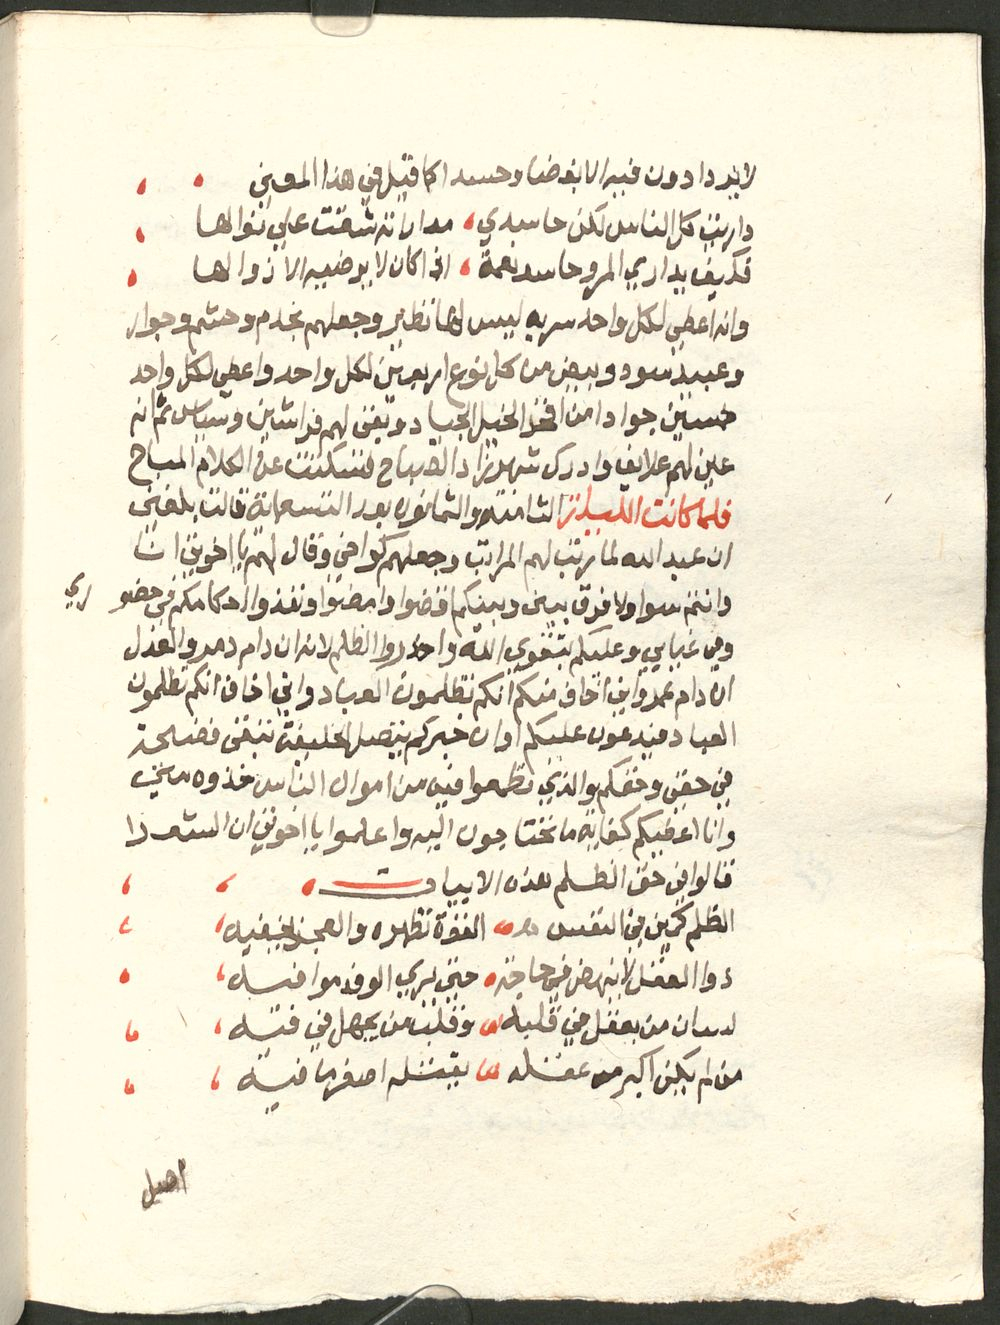 لا يزدادون فيه الا بغضا وحسدا كما قيل في هذا المعني
داريت كل الناس لكن حاسدي مداراته شقت علي نوالها
فكيف يداري المرو حاسد نعمة اذا كان لا يرضيه الا زوالها
وانه اعطي لكل واحد سريه ليس لها نظير وجعلهم بخدم وحشم وجوار
وعبيد سود وبيض من كل نوع اربعين لكل واحد واعطي لكل واحد
خمسين جوادا من افخر الخيل الجياد وبقي لهم فراشين وسياس ثم انه
عين لهم علايف وادرك شهرزاد الصباح فسكتت عن الكلام المباح
فلما كانت الليلة الثامنه والثمانون بعد التسعماية قالت بلغني
ان عبد الله لما رتب لهم المراتب وجعلهم كواخي وقال لهم يا اخوتي انا
وانتم سوا ولا فرق بيني وبينكم اقضوا وامضوا ونفذوا احكامكم في حضوري
وفي غيابي وعليكم بتقوي الله واحذروا الظلم لانه ان دام دمر والعدل
ان دام عمر واني اخاف منكم انكم تظلمون العباد واني اخاف انكم تظلمون
العباد فيدعون عليكم او ان خبركم يتصل الخليفة فتبقي فضيحة
في حقي وحقكم والذي تطمعوا فيه من اموال الناس خذوه مني
وانا اعطيكم كفاية ما تحتاجون اليه واعلموا يا اخوتي ان الشعرا
قالوا في حق الظلم هذه الابيات
الظلم كمين في النفس القوة تظهره والعجز يخفيه
ذوا العقل لا ينهض في حاجة حتي يري الوقد موافيه
لسان من يعقل في قلبه وقلب من يجهل في فيه
من لم يكن اكبر من عقله يقتله اصغر ما فيه
اصل